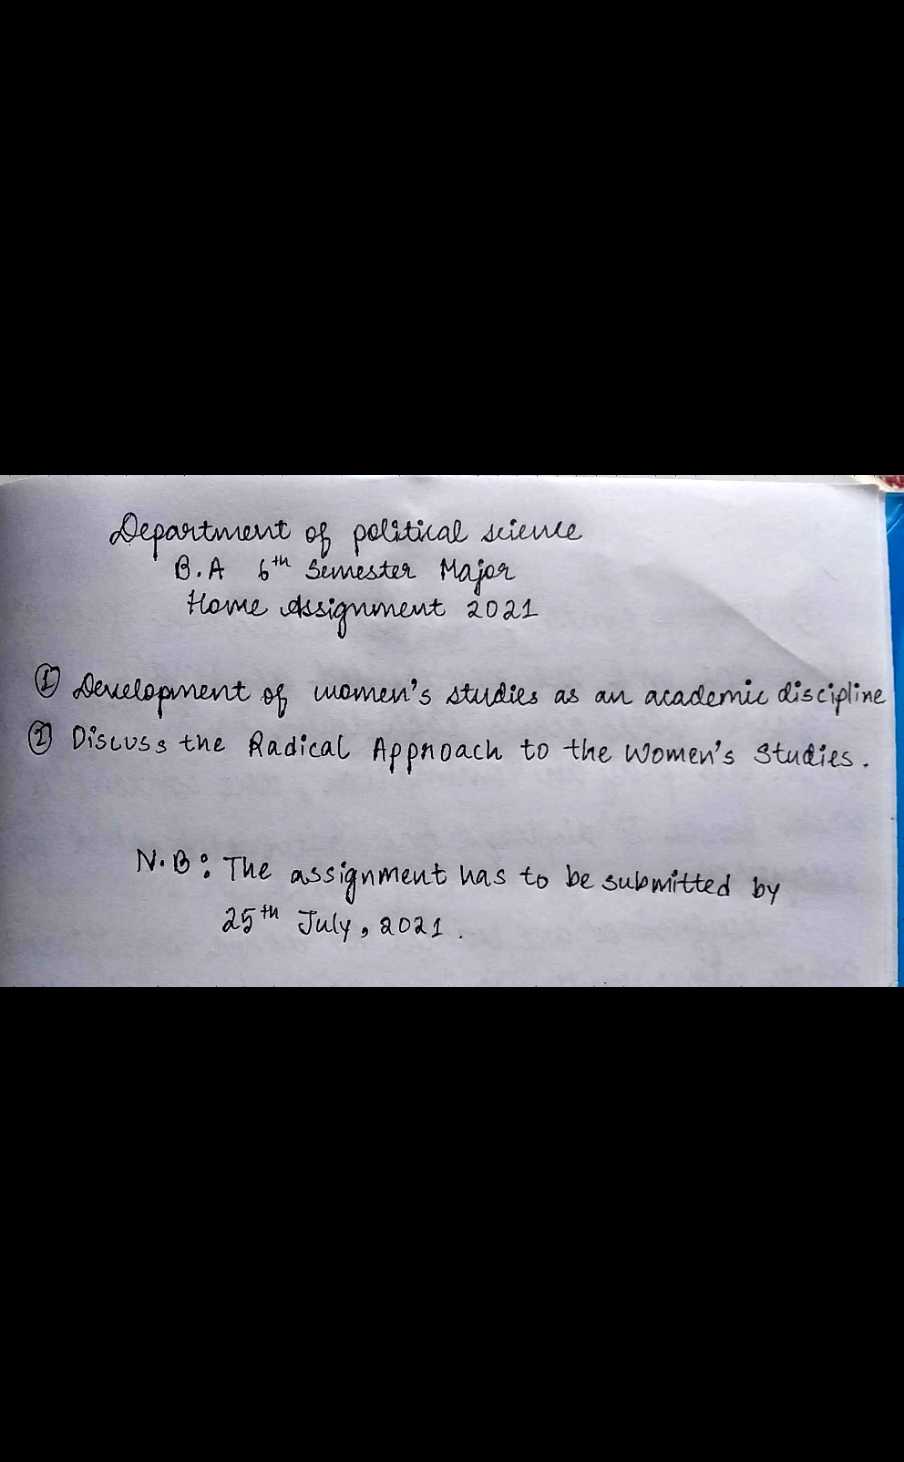 Department of political science
B.A 6th Semester Major
Home Assignment 2021
① Development of women's studies as an academic discipline
② Discuss the Radical Approach to the Women's Studies.
N.B: The assignment has to be submitted by
25th July, 2021.